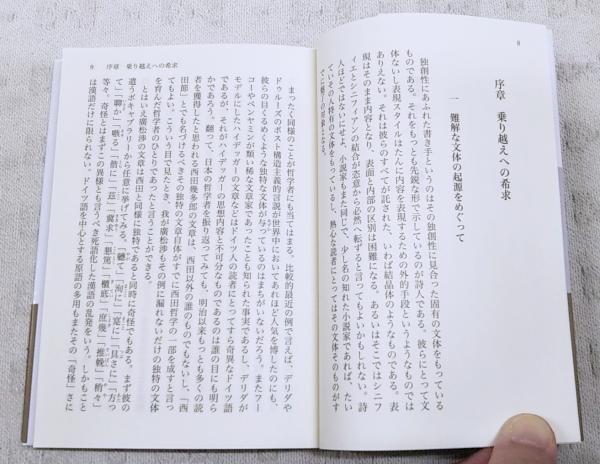 8
序章 乗り越えへの希求
一 難解な文体の起源をめぐって
独創性にあふれた書き手というのはその独創性に見合った固有の文体をもっている
ものである。それをもっとも先鋭な形で示しているのが詩人である。彼らにとって文
体ないし表現スタイルはたんに内容を表現するための外的手段というようなものでは
ありえない。それは彼らのすべてが託された、いわば結晶体のようなものである。表
現はそのまま内容となり、表面と内部の区別は困難になる。あるいはそこではシニフ
ィエとシニフィアンの結合が恣意から必然へ転ずると言ってもよいかもしれない。詩
人ほどではないにせよ、小説家もまた同じで、少し名の知れた小説家であれば、たい
ていその人特有の文体をもっているし、熱心な読者にとってはその文体そのものがす
でに魅力の対象となる。
9 序章 乗り越えへの希求
まったく同様のことが哲学者にも当てはまる。比較的最近の例で言えば、デリダや
ドゥルーズのポスト構造主義的言説が世界中においてあれほど人気を博したのにも、
彼らの目くるめくような独特な文体が与っているのはまちがいないだろう。またフー
コーやベンヤミンが類い稀な文章家であったことも知られた事実であるし、デリダが
モデルにしたハイデッガーの文章などはドイツ人の読者にとってすら奇異なドイツ語
であるが、それがハイデッガーの思想内容と不可分なものであるのは誰の目にも明ら
かであろう。翻って、日本の哲学者を振り返ってみても、明治以来もっとも多くの読
者を獲得したと思われる西田幾多郎の文章は、西田以外の誰のものでもないし、「西
田節」とでも名づけるべきその独特の文章自体がすでに西田哲学の一部を成すと言っ
てもよい。こういう目で見たとき、我が廣松渉もその例に漏れないだけの独特の文体
を育んだ哲学者のひとりであったと言うことができる。
とはいえ廣松渉の文章は西田と同様に独特であると同時に奇怪でもある。まず彼の
遣うボキャブラリーから任意に挙げてみる。「軈て」「洵に」「寔に」「具さに」「方っ
て」「聊か」「嗾る」「偕に」「茲」「冀求」「慇篤」「櫃底」「庶幾」「推輓」「稍々」
等々。奇怪とはまずこの異様とも言うべき死語化した漢語の乱発をいう。しかもこと
は漢語だけに限られない。ドイツ語を中心とする原語の多用もまたその「奇怪」さに